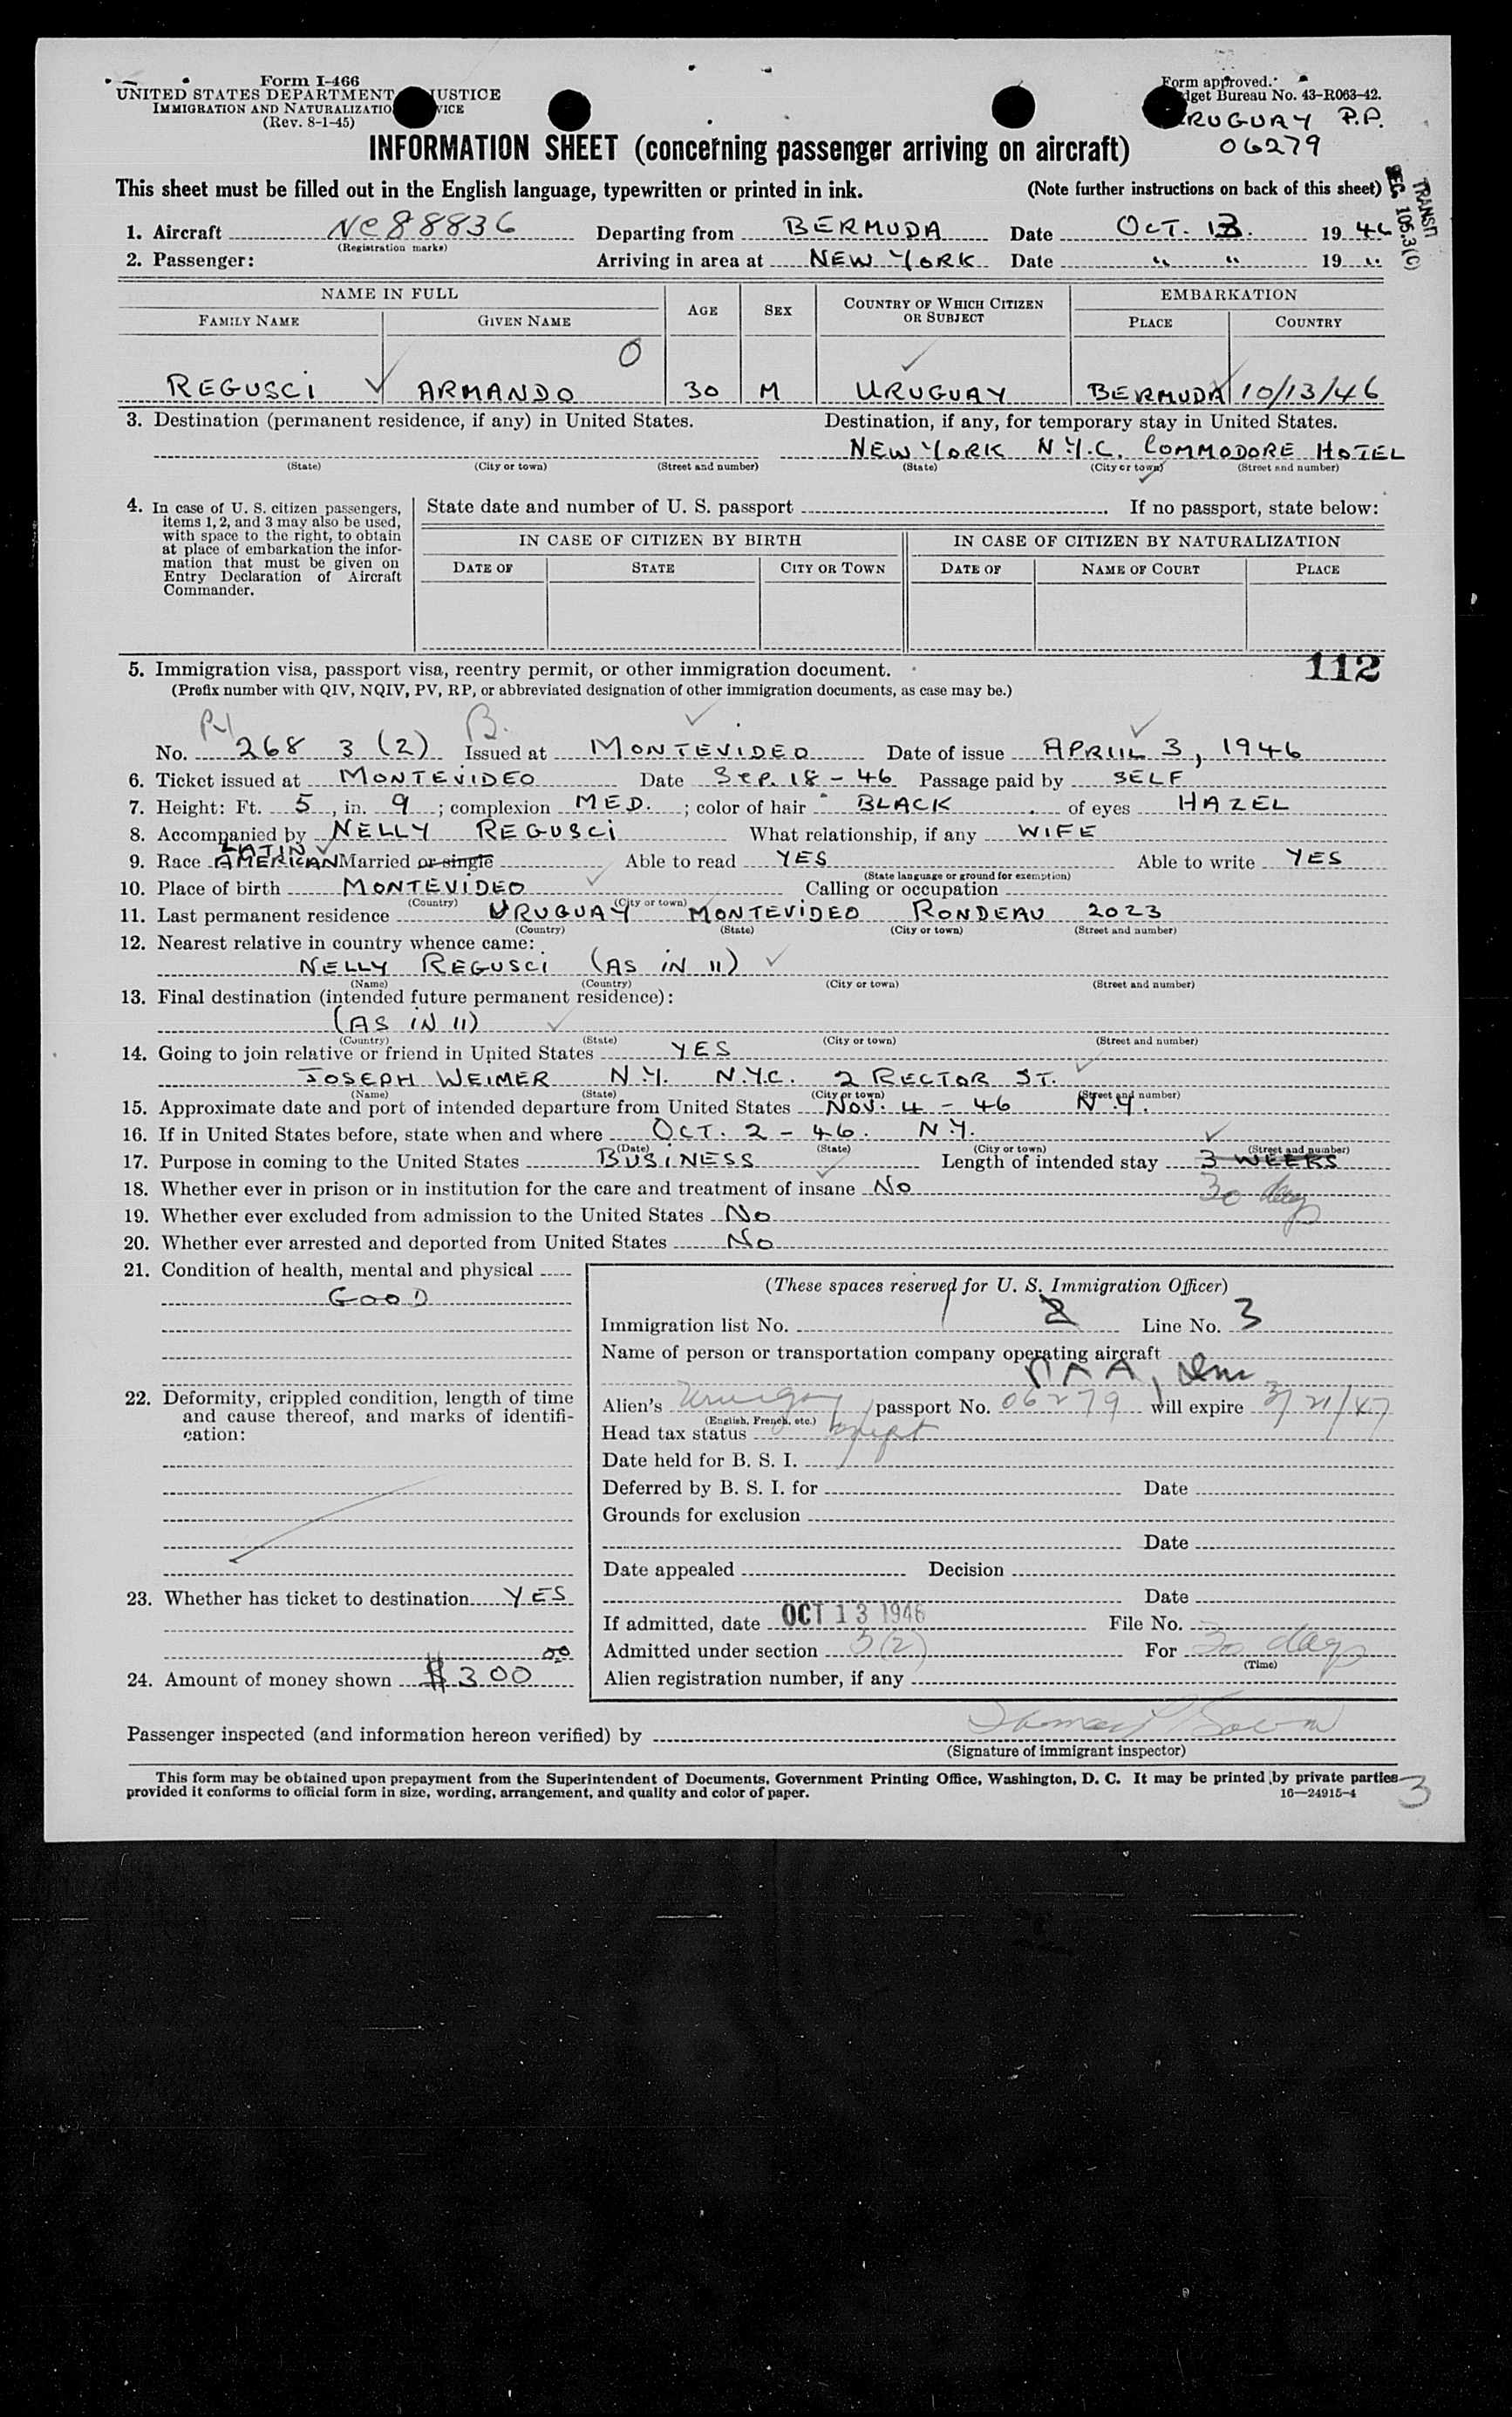 Form I-466
UNITED STATES DEPARTMENT JUSTICE
IMMIGRATION AND NATURALIZATIO VICE
(Rev. 8-1-45)
Form approved.
dget Bureau No. 43-R063-42.
RUGUAY P.P.
06279
INFORMATION SHEET (concerning passenger arriving on aircraft)
This sheet must be filled out in the English language, typewritten or printed in ink. (Note further instructions on back of this sheet)
TRANSIT
SEC. 105.3(C)
1. Aircraft NC88836 Departing from BERMUDA Date OCT. 13. 1946
(Registration marks)
2. Passenger: Arriving in area at NEW YORK Date " " 19 "
NAME IN FULL AGE SEX COUNTRY OF WHICH CITIZEN OR SUBJECT EMBARKATION
FAMILY NAME GIVEN NAME PLACE COUNTRY
O
REGUSCI ARMANDO 30 M URUGUAY BERMUDA 10/13/46
3. Destination (permanent residence, if any) in United States. Destination, if any, for temporary stay in United States.
NEW YORK N.Y.C. COMMODORE HOTEL
(State) (City or town) (Street and number) (State) (City or town) (Street and number)
4. In case of U. S. citizen passengers, items 1, 2, and 3 may also be used, with space to the right, to obtain at place of embarkation the information that must be given on Entry Declaration of Aircraft Commander.
State date and number of U. S. passport If no passport, state below:
IN CASE OF CITIZEN BY BIRTH IN CASE OF CITIZEN BY NATURALIZATION
DATE OF STATE CITY OR TOWN DATE OF NAME OF COURT PLACE
112
5. Immigration visa, passport visa, reentry permit, or other immigration document.
(Prefix number with QIV, NQIV, PV, RP, or abbreviated designation of other immigration documents, as case may be.)
No. 268 3 (2) Issued at MONTEVIDEO Date of issue APRIIL 3, 1946
6. Ticket issued at MONTEVIDEO Date SEP. 18-46 Passage paid by SELF
7. Height: Ft. 5, in. 9; complexion MED.; color of hair BLACK of eyes HAZEL
8. Accompanied by NELLY REGUSCI What relationship, if any WIFE
9. Race LATIN AMERICAN Married or single Able to read YES Able to write YES
(State language or ground for exemption)
10. Place of birth MONTEVIDEO Calling or occupation
(Country) (City or town)
11. Last permanent residence URUGUAY MONTEVIDEO RONDEAU 2023
(Country) (State) (City or town) (Street and number)
12. Nearest relative in country whence came:
NELLY REGUSCI (AS IN 11)
(Name) (Country) (City or town) (Street and number)
13. Final destination (intended future permanent residence):
(AS IN 11)
(Country) (State) (City or town) (Street and number)
14. Going to join relative or friend in United States YES
JOSEPH WEIMER N.Y. N.Y.C. 2 RECTOR ST.
(Name) (State) (City or town) (Street and number)
15. Approximate date and port of intended departure from United States NOV. 4-46 N.Y.
16. If in United States before, state when and where OCT. 2-46. N.Y.
(Date) (State) (City or town) (Street and number)
17. Purpose in coming to the United States BUSINESS Length of intended stay 3 WEEKS
30 days
18. Whether ever in prison or in institution for the care and treatment of insane NO
19. Whether ever excluded from admission to the United States NO
20. Whether ever arrested and deported from United States NO
21. Condition of health, mental and physical
GOOD
22. Deformity, crippled condition, length of time and cause thereof, and marks of identification:
23. Whether has ticket to destination YES
24. Amount of money shown $300 00
(These spaces reserved for U. S. Immigration Officer)
Immigration list No. 2 Line No. 3
Name of person or transportation company operating aircraft
PAA
Alien's Uruguay passport No. 06279 will expire 3/21/47
(English, French, etc.)
Head tax status exempt
Date held for B. S. I.
Deferred by B. S. I. for Date
Grounds for exclusion
Date
Date appealed Decision
Date
If admitted, date OCT 13 1946 File No.
Admitted under section 3(2) For 30 days
(Time)
Alien registration number, if any
Passenger inspected (and information hereon verified) by
(Signature of immigrant inspector)
This form may be obtained upon prepayment from the Superintendent of Documents, Government Printing Office, Washington, D. C. It may be printed by private parties
provided it conforms to official form in size, wording, arrangement, and quality and color of paper. 16—24915-4
3